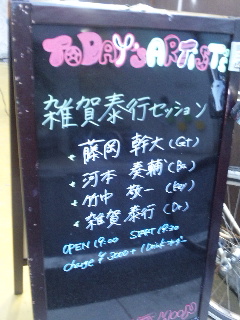 TODAY'S ARTIST
雑賀泰行セッション
藤岡 幹大(GT)
河本 奏輔(Ba)
竹中 敬一(Key)
雑賀 泰行(Dr)
OPEN 19:00 START 19:30
Charge ¥3000+1Drinkオーダー